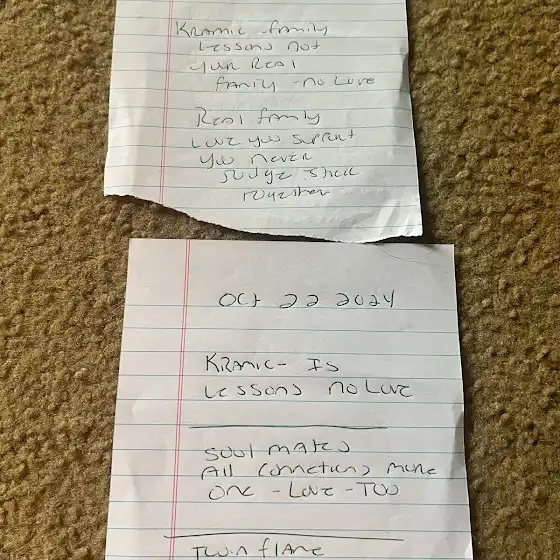 Kramic family
Lessons not
your Real
family - no Love
Real family
Love you support
you never
Judge stick
together
Oct 22 2024
Kramic - Is
Lessons no Love
soul mates
All connections more
one - Love - Too
Twin flame